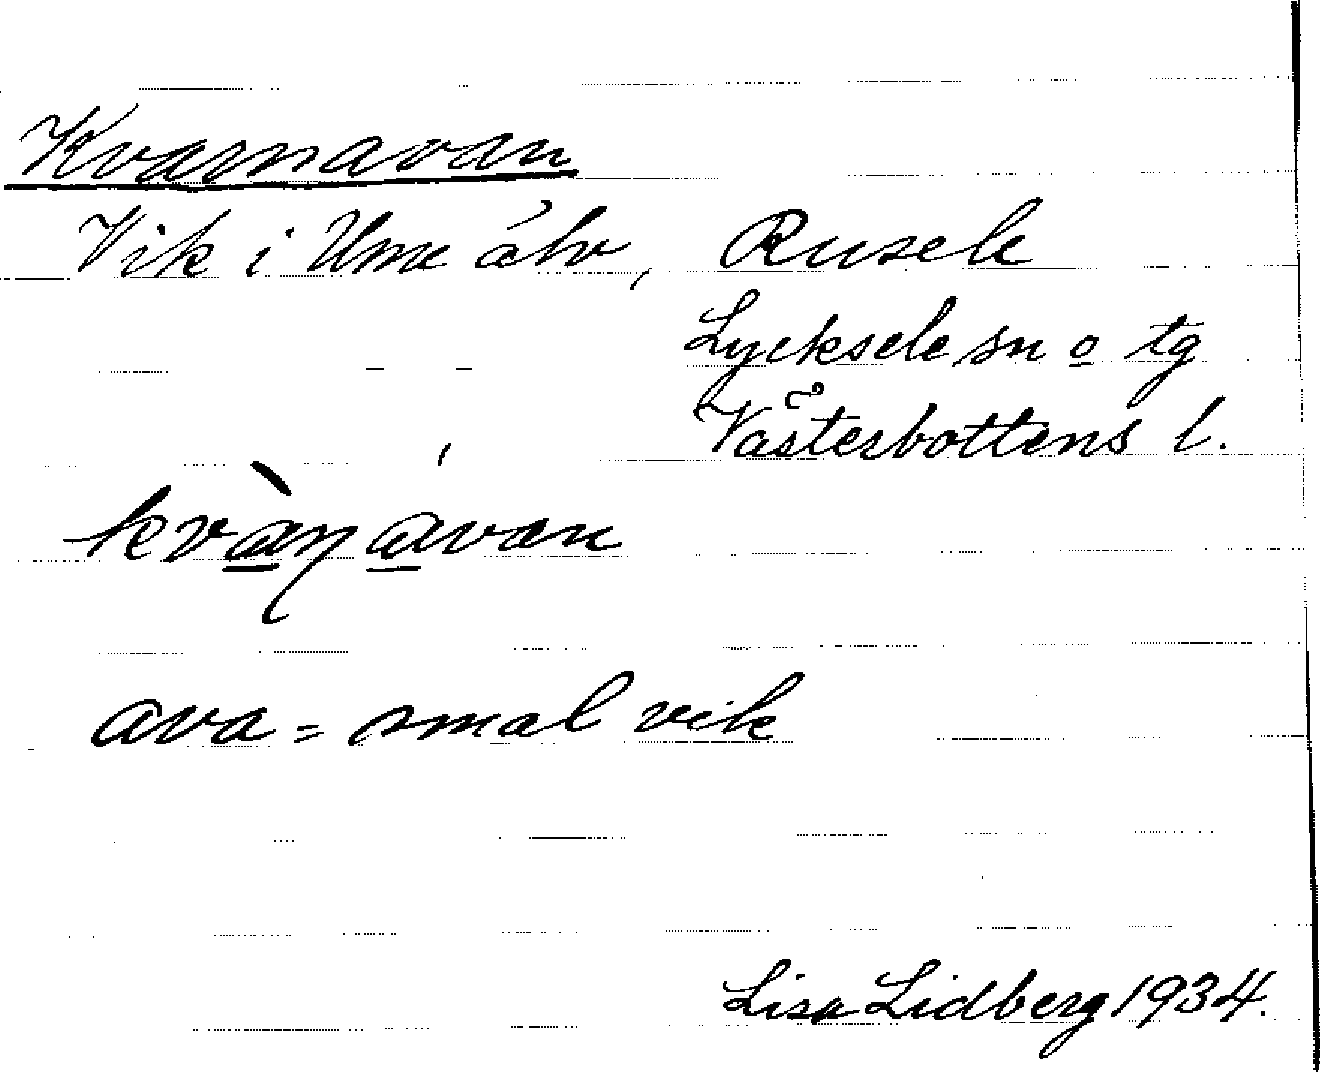 Kvarnavan
Vik i Ume älv, Rusele
Lycksele sn o tg
Västerbottens l.
kvànávan
ava = smal vik
Lisa Lidberg 1934.